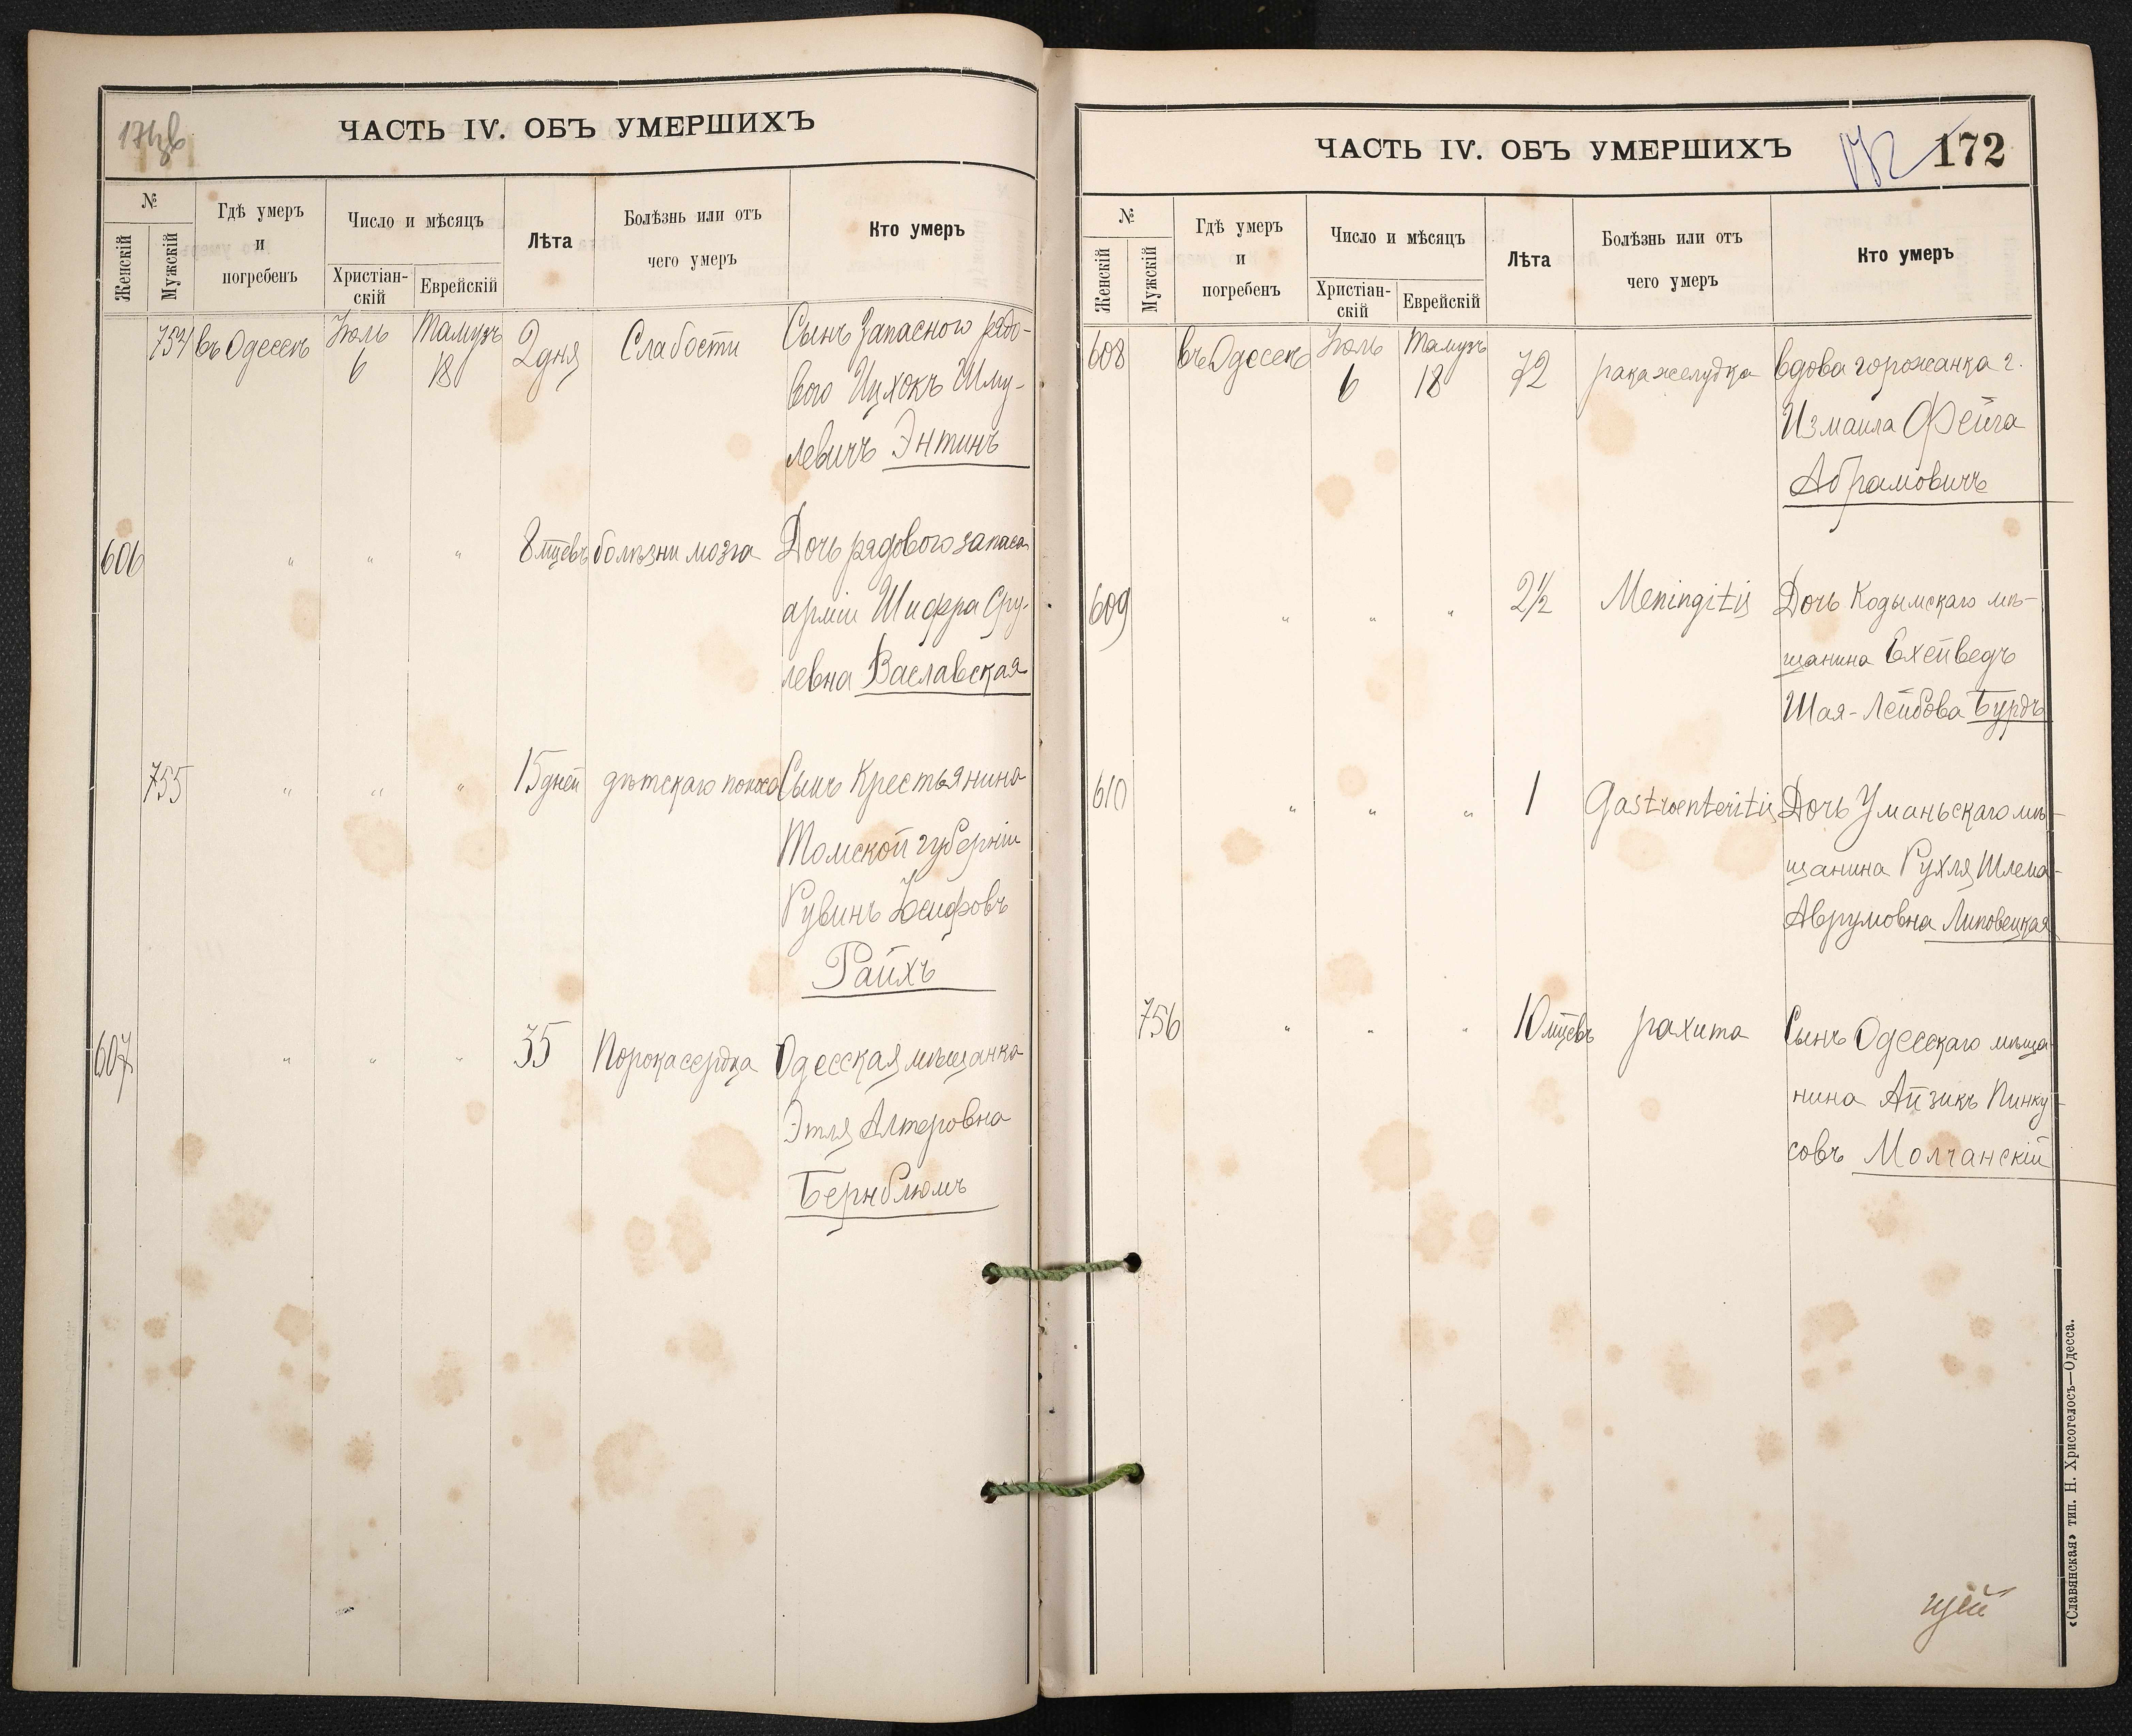 ЧАСТЬ IV. ОБЪ УМЕРШИХЪ
№
Женскій
Мужскій
Гдѣ умеръ
и
погребенъ
Число и мѣсяцъ
Христіан-
скій
Еврейскій
Лѣта
Болѣзнь или отъ
чего умеръ
Кто умеръ
754 въ Одессѣ Іюль 6 Тамузъ 18 2 дня Слабости Сынъ Запасного рядо-
вого Ицхокъ Шму-
левичъ Энтинъ
606 " " " 8 мцевъ болѣзни мозга Дочь рядового запаса
арміи Шифра Сру-
левна Заславская
755 " " " 15 дней дѣтскаго поноса Сынъ Крестьянина
Томской губерніи
Рувинъ Іосифовъ
Райхъ
607 " " " 35 Порока сердца Одесская мѣщанка
Этля Алтеровна
Бернблюмъ
ЧАСТЬ IV. ОБЪ УМЕРШИХЪ
172 172
№
Женскій
Мужскій
Гдѣ умеръ
и
погребенъ
Число и мѣсяцъ
Христіан-
скій
Еврейскій
Лѣта
Болѣзнь или отъ
чего умеръ
Кто умеръ
608 въ Одессѣ Іюль 6 Тамузъ 18 72 рака желудка вдова горожанка г.
Измаила Фейга
Абрамовичъ
609 " " " 2½ Meningitis Дочь Кодымскаго мѣ-
щанина Ехейведъ
Шая-Лейбова Бурдъ
610 " " " 1 Gastroenteritis Дочь Уманьскаго мѣ-
щанина Рухля Шлема-
Аврумовна Липовецкая
756 " " " 10 мцевъ рахита Сынъ Одесскаго мѣща-
нина Айзикъ Пинку-
совъ Молчанскій
«Славянская» тип. Н. Хрисогелосъ—Одесса.